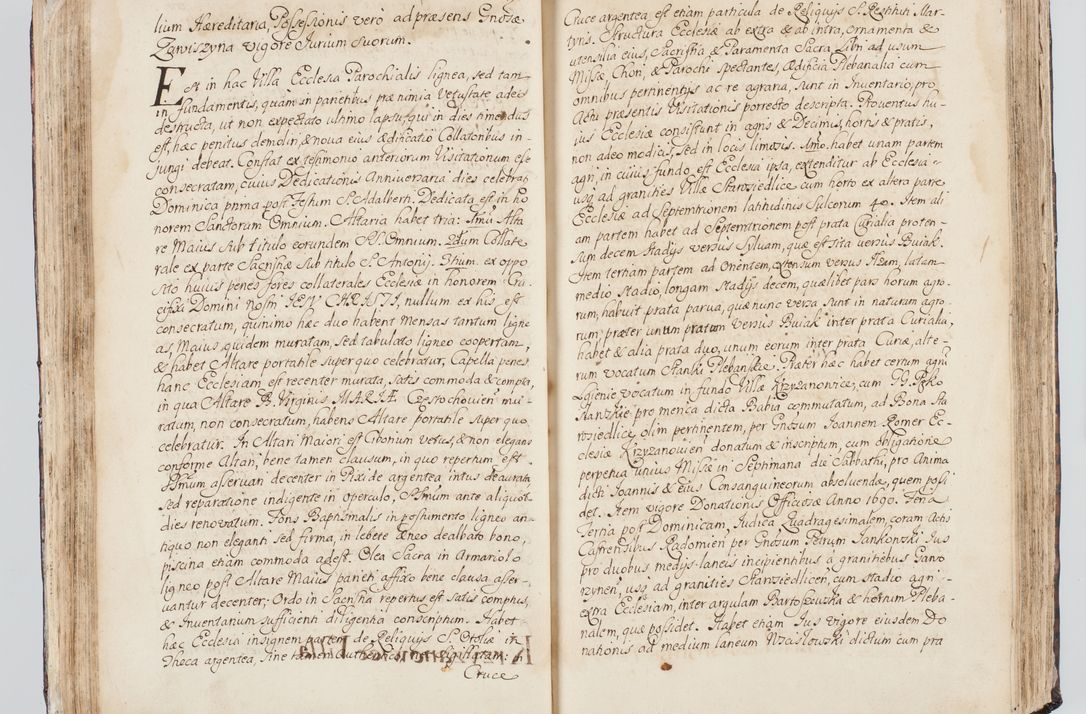 lium Hæreditaria, Possessionis verò ad præsens Gnosæ
Zawiszyna vigore Iurium suorum.
Est in hac Villa Ecclesia Parochialis lignea, sed tam
in fundamentis, quàm in parietibus præ nimia vetustate adeò
destructa, ut non expectato ultimo lapsu, qui in dies timendus
est, hæc penitus demoliri, & nova eius ædificatio Collatoribus in-
jungi debeat. Constat ex testimonio anteriorum Visitationum esse
consecratam, cuius Dedicationis Anniversaria dies celebrat
Dominica prima post Festum S. Adalberti. Dedicata est in ho
norem Sanctorum Omnium. Altaria habet tria: 1mū Alta
re Maius sub titulo eorundem SS. Omnium. 2dum Collate
rale ex parte Sacristiæ sub titulo S. Antonij. 3tium. ex oppo
sito huius penes fores collaterales Ecclesiæ in honorem Cru
cifixi Domini nostri IESV CHRISTI, nullum ex his est
consecratum, quinimo hæc duo habent Mensas tantum ligne
as, Maius quidem muratam, sed tabulato ligneo coopertam,
& habet Altare portatile super quo celebratur. Capella penes
hanc Ecclesiam est recenter murata, satis commoda & compta,
in qua Altare B. Virginis MARIÆ Częstochovien̄ mu-
ratum, non consecratum, habens Altare portatile super quo
celebratur. In Altari Maiori est Ciborium vetus, & non elegans
conforme Altari, bene tamen clausum, in quo repertum est
SSmum asservari decenter in Pixide argentea intus deaurata
sed reparatione indigente in operculo, SSmum ante aliquot
dies renovatum. Fons Baptismalis in postumento ligneo an-
tiquo non eleganti sed firma, in lebete æneo dealbato bono,
piscina etiam commoda adest. Olea Sacra in Armariolo
ligneo post Altare Maius parieti affixo bene clausa asser-
vantur decenter; Ordo in Sacristia repertus est satis comptus,
& Inventarium sufficienti diligentia conscriptum. Habet
hæc Ecclesia insignem partem de Reliquijs S. in
Theca argentea, sine tamen Authentico in
Cruce
Cruce argentea est etiam particula de Reliquijs S. Restituti Mar-
tyris. Structura Ecclesiæ ab extra & ab intra, ornamenta &
utensilia eius, Sacristia & Paramenta Sacra, Libri ad usum
Missæ, Chori, & Parochi spectantes, Ædificia Plebanalia cum
omnibus pertinentijs ac re agraria, sunt in Inventario, pro
Actu præsentis Visitationis porrecto descripta. Proventus hu-
ius Ecclesiæ consistunt in agris & Decimis, hortis & pratis,
non adeo modicis, sed in locis limosis. 1mo. habet unam partem
agri, in cuius fundo est Ecclesia ipsa, extenditur ab Ecclesia
usq ad granities Villæ Starosiedlice cum horto ex altera parte
Ecclesiæ ad Septemtrionem latitudinis Sulcorum 40. Item ali
am partem habet ad Septemtrionem post prata Curialia proten-
sum decem Stadijs versus Sylvam, quæ est sita versus Buiak.
Item tertiam partem ad Orientem, extensum versus latam
medio Stadio, longam Stadijs decem, quælibet pars horum agro-
rum, habuit prata parva, quæ nunc versa sunt in naturam agro-
rum, præter unum pratum versus Buiak inter prata Curialia,
habet & alia prata duo, unum eorum inter prata Curiæ, alte-
rum vocatum Stanki Plebańskie. Præter hæc habet certum agri
Lgienie vocatum in fundo Villæ Krzyżanowice, cum GG.
pro menca dicta Babia commutatum, ad Bona Sta
rosiedlice olim pertinentem, per Gnosum Ioannem Romer Ec-
clesiæ Krzyżanovien̄ donatum & inscriptum, cum obligatione
perpetua unius Missæ in Septimana die Sabbathi, pro Anima
dicti Ioannis & eius Consanguineorum absolvenda, quem possi
det. Item vigore Donationis Officiosæ Anno 1690. Feria
Tertia post Dominicam, Iudica, Quadragesimalem, coram Actis
Castrensibus Radomien̄ per Gnosum Petrum Iankowski Ius
pro duobus medijs laneis incipientibus à granitiebus
usq ad granities Starosiedlicen̄, cum Stadio agri
extra Ecclesiam, inter argulam Bartoszowska & hortum Pleba-
nalem, quæ possidet. Habet etiam Ius vigore eiusdem Do
nationis ad medium laneum dictum cum pra